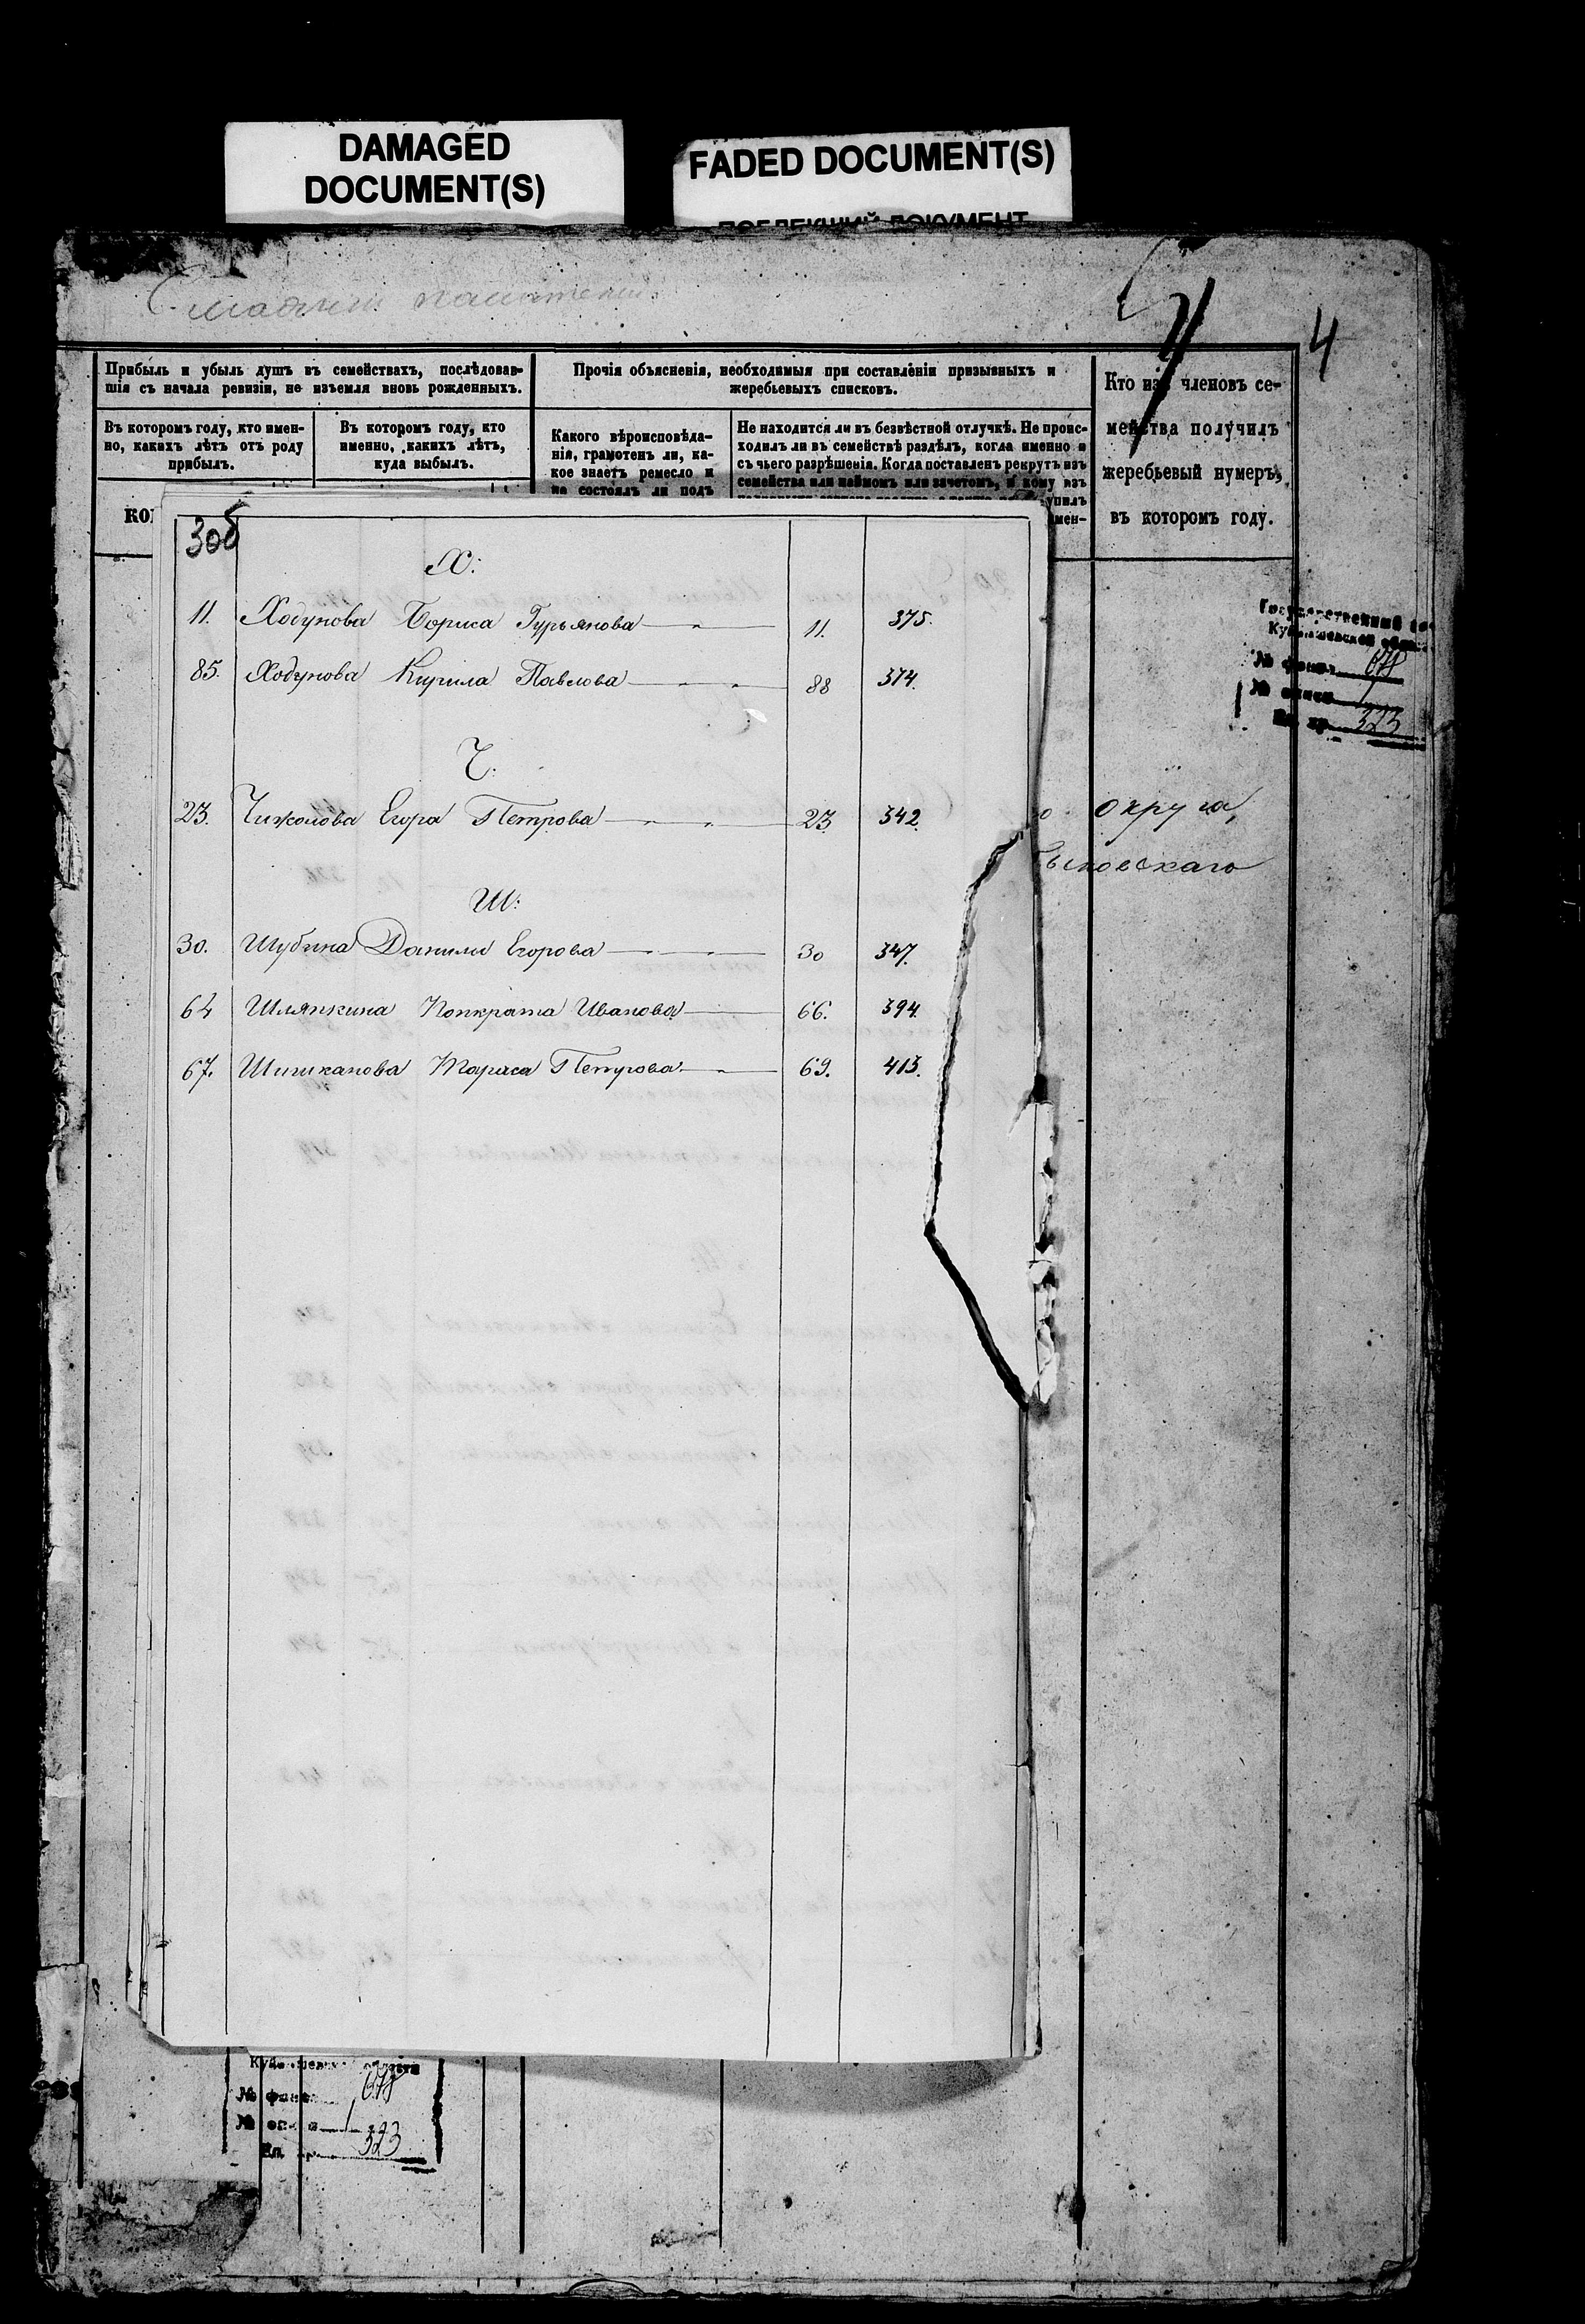 DAMAGED
DOCUMENT(S)
FADED DOCUMENT(S)
4
Прибыль и убыль душъ въ семействахъ, послѣдовав-
шія съ начала ревизіи, не изъемля вновь рожденныхъ.
Въ которомъ году, кто имен-
но, какихъ лѣтъ отъ роду
прибылъ.
Въ которомъ году, кто
именно, какихъ лѣтъ,
куда выбылъ.
Прочія объясненія, необходимыя при составленіи призывныхъ и
жеребьевыхъ списковъ.
Какого вѣроисповѣда-
нія, грамотенъ ли, ка-
кое знаетъ ремесло и
не состоялъ ли подъ
Не находится ли въ безвѣстной отлучкѣ. Не проис-
ходилъ ли въ семействѣ раздѣлъ, когда именно и
съ чьего разрѣшенія. Когда поставленъ рекрутъ изъ
семейства или наймомъ или зачетомъ, и кому изъ
Кто изъ членовъ се-
мейства получилъ
жеребьевый нумеръ,
въ которомъ году.
Х:
11. Ходунова Бориса Гурьянова 11. 375.
85. Ходунова Кирила Павлова 88 374.
Ч:
23. Чижолова Егора Петрова 23 342.
Ш:
30. Шубина Данилы Егорова 30 347.
64 Шляпкина Понкрата Иванова 66. 394.
67. Шишканова Тараса Петрова 69. 413.
округа,
678
323
678
1
323